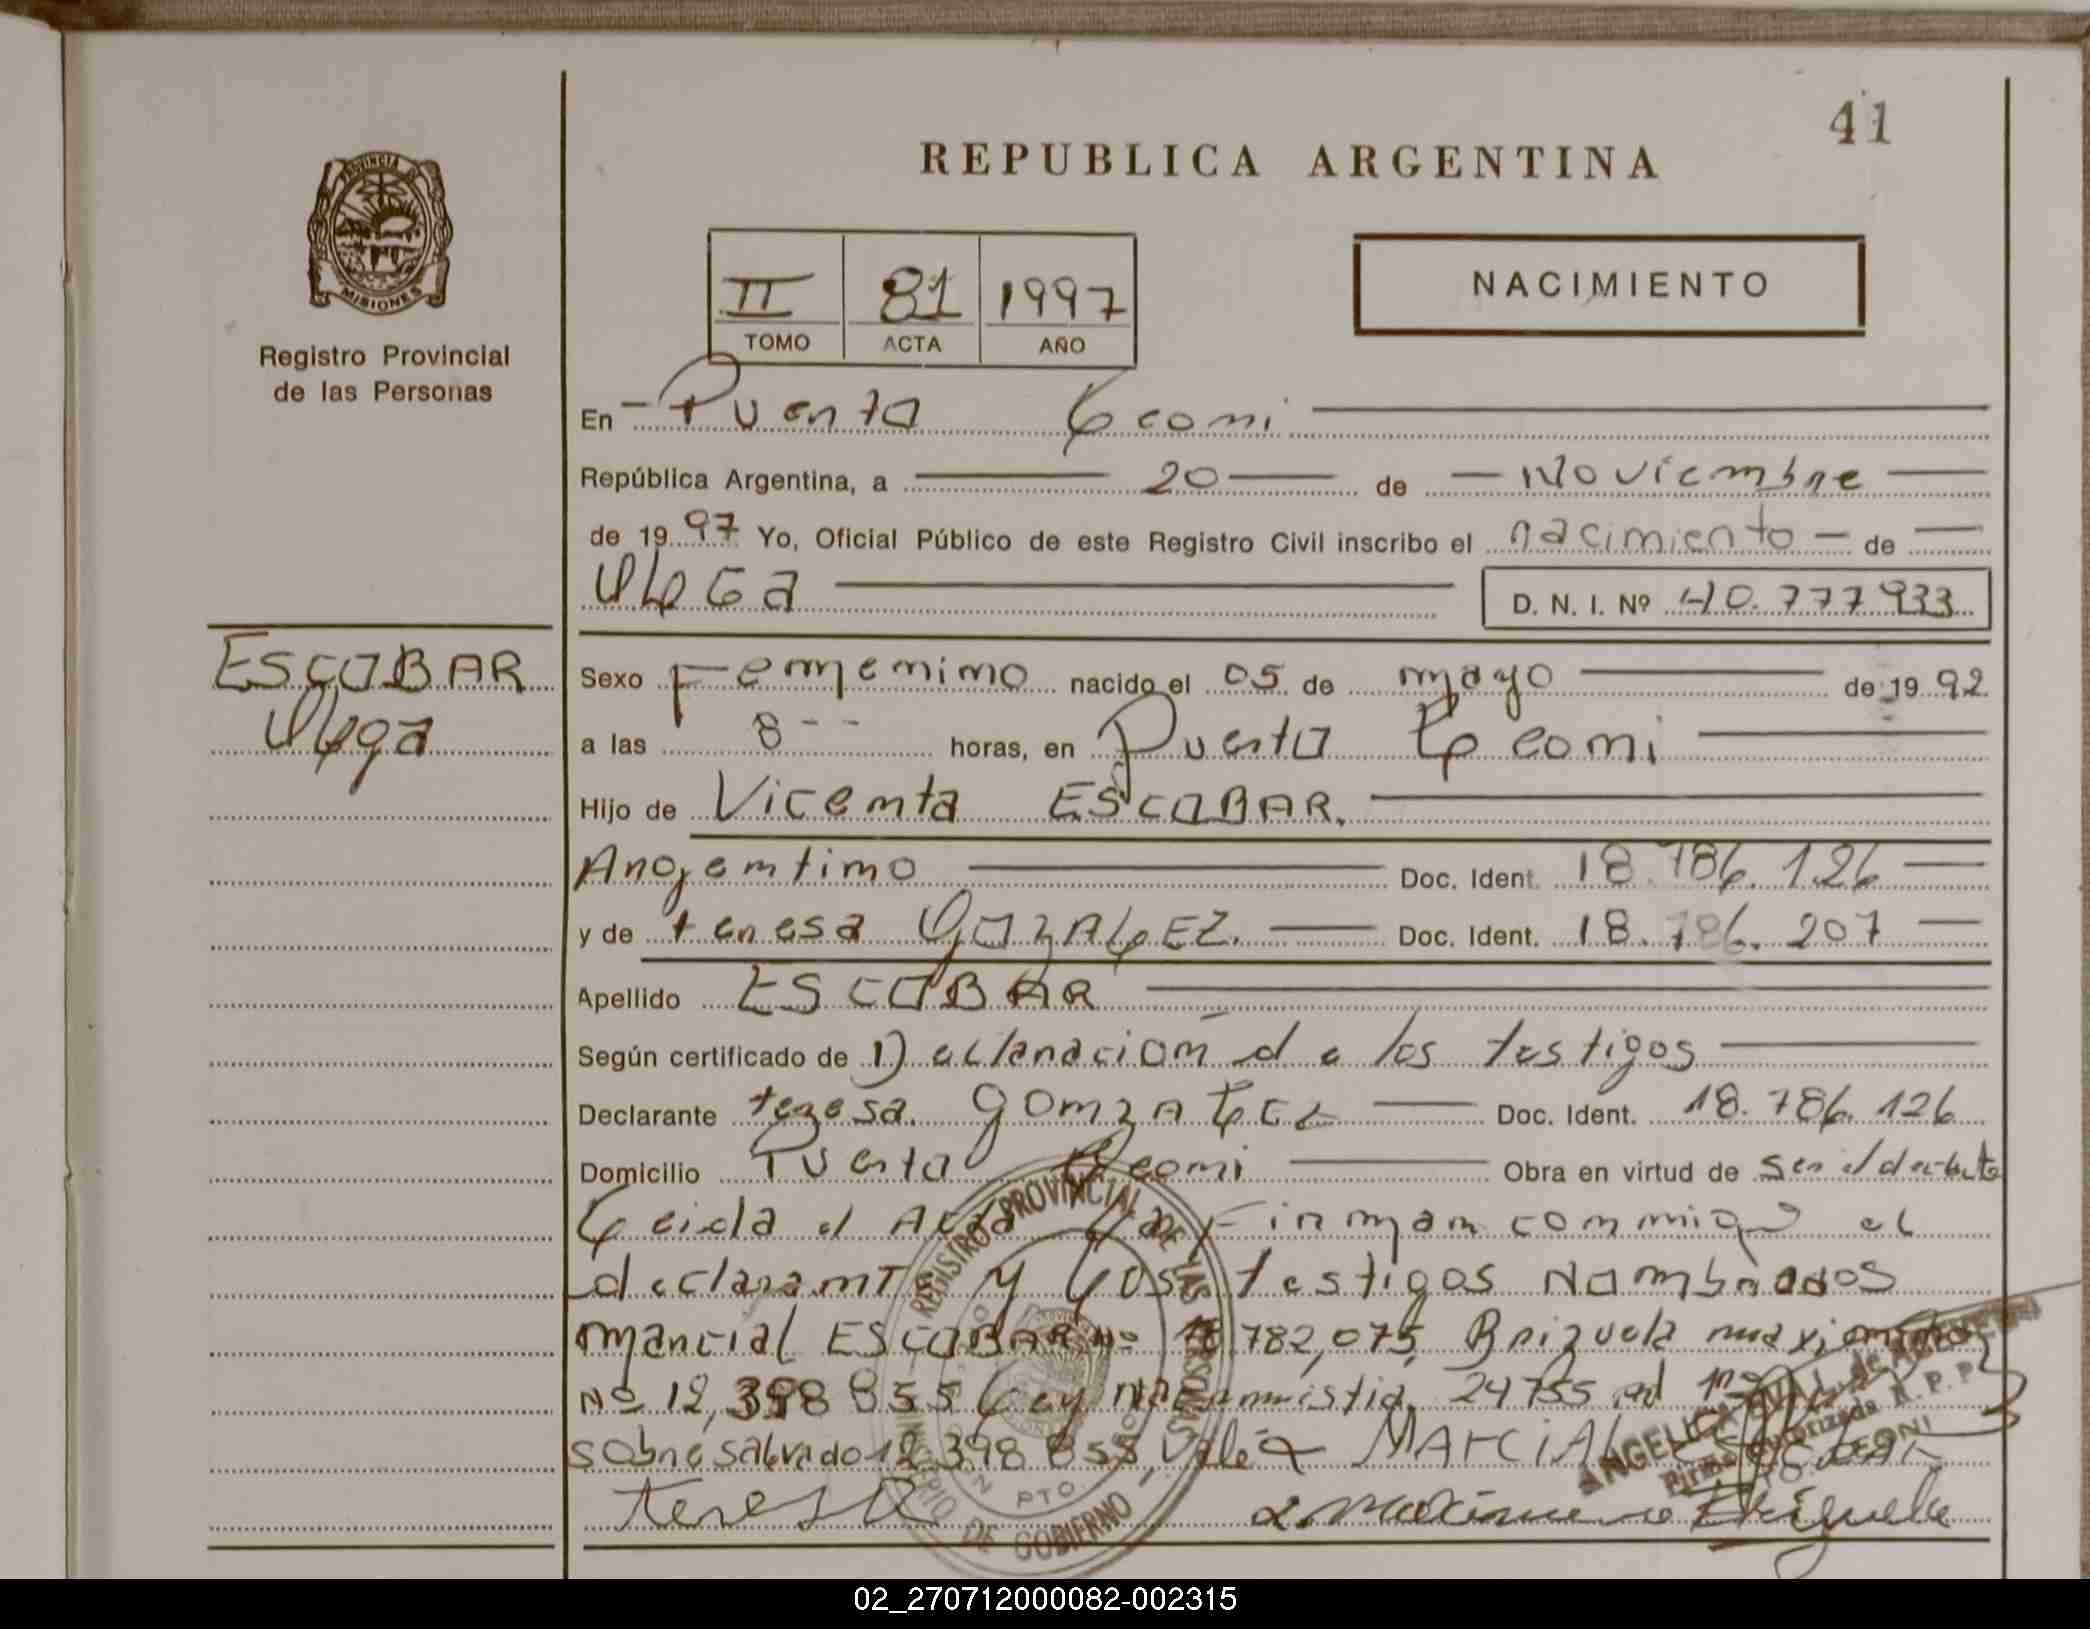 41
REPUBLICA ARGENTINA
PROVINCIA DE
MISIONES
Registro Provincial
de las Personas
II 81 1997
TOMO ACTA AÑO
NACIMIENTO
En Puerto Leoni
República Argentina, a 20 de Noviembre
de 1997 Yo, Oficial Público de este Registro Civil inscribo el nacimiento de
D. N. I. Nº 40.777933
ESCOBAR
Sexo Femenino nacido el 05 de mayo de 1992
a las 8 horas, en Puerto Leoni
Hijo de Vicenta ESCOBAR.
Argentino Doc. Ident. 18.786.126
y de teresa GOZALEZ. Doc. Ident. 18.786.207
Apellido ESCOBAR
Según certificado de Declaración de los testigos
Declarante teresa. gonzalez Doc. Ident. 18.786.126
Domicilio Puerto Leoni Obra en virtud de ser el declarante
Leida el Acta La Firman conmigo el
declarante y Los testigos Nombrados
marcial ESCOBAR Nº 782,075, Brizuela maximino
Nº 12,398 855 Ley 24755 ad
sobre salvado 12 398 855, Vale MARCIAL
teresa Brizuela
REGISTRO PROVINCIAL DE LAS PERSONAS
MINISTERIO DE GOBIERNO
PTO.
ANGELICA
Firma Autorizada R. P. P.
LEONI
02_270712000082-002315